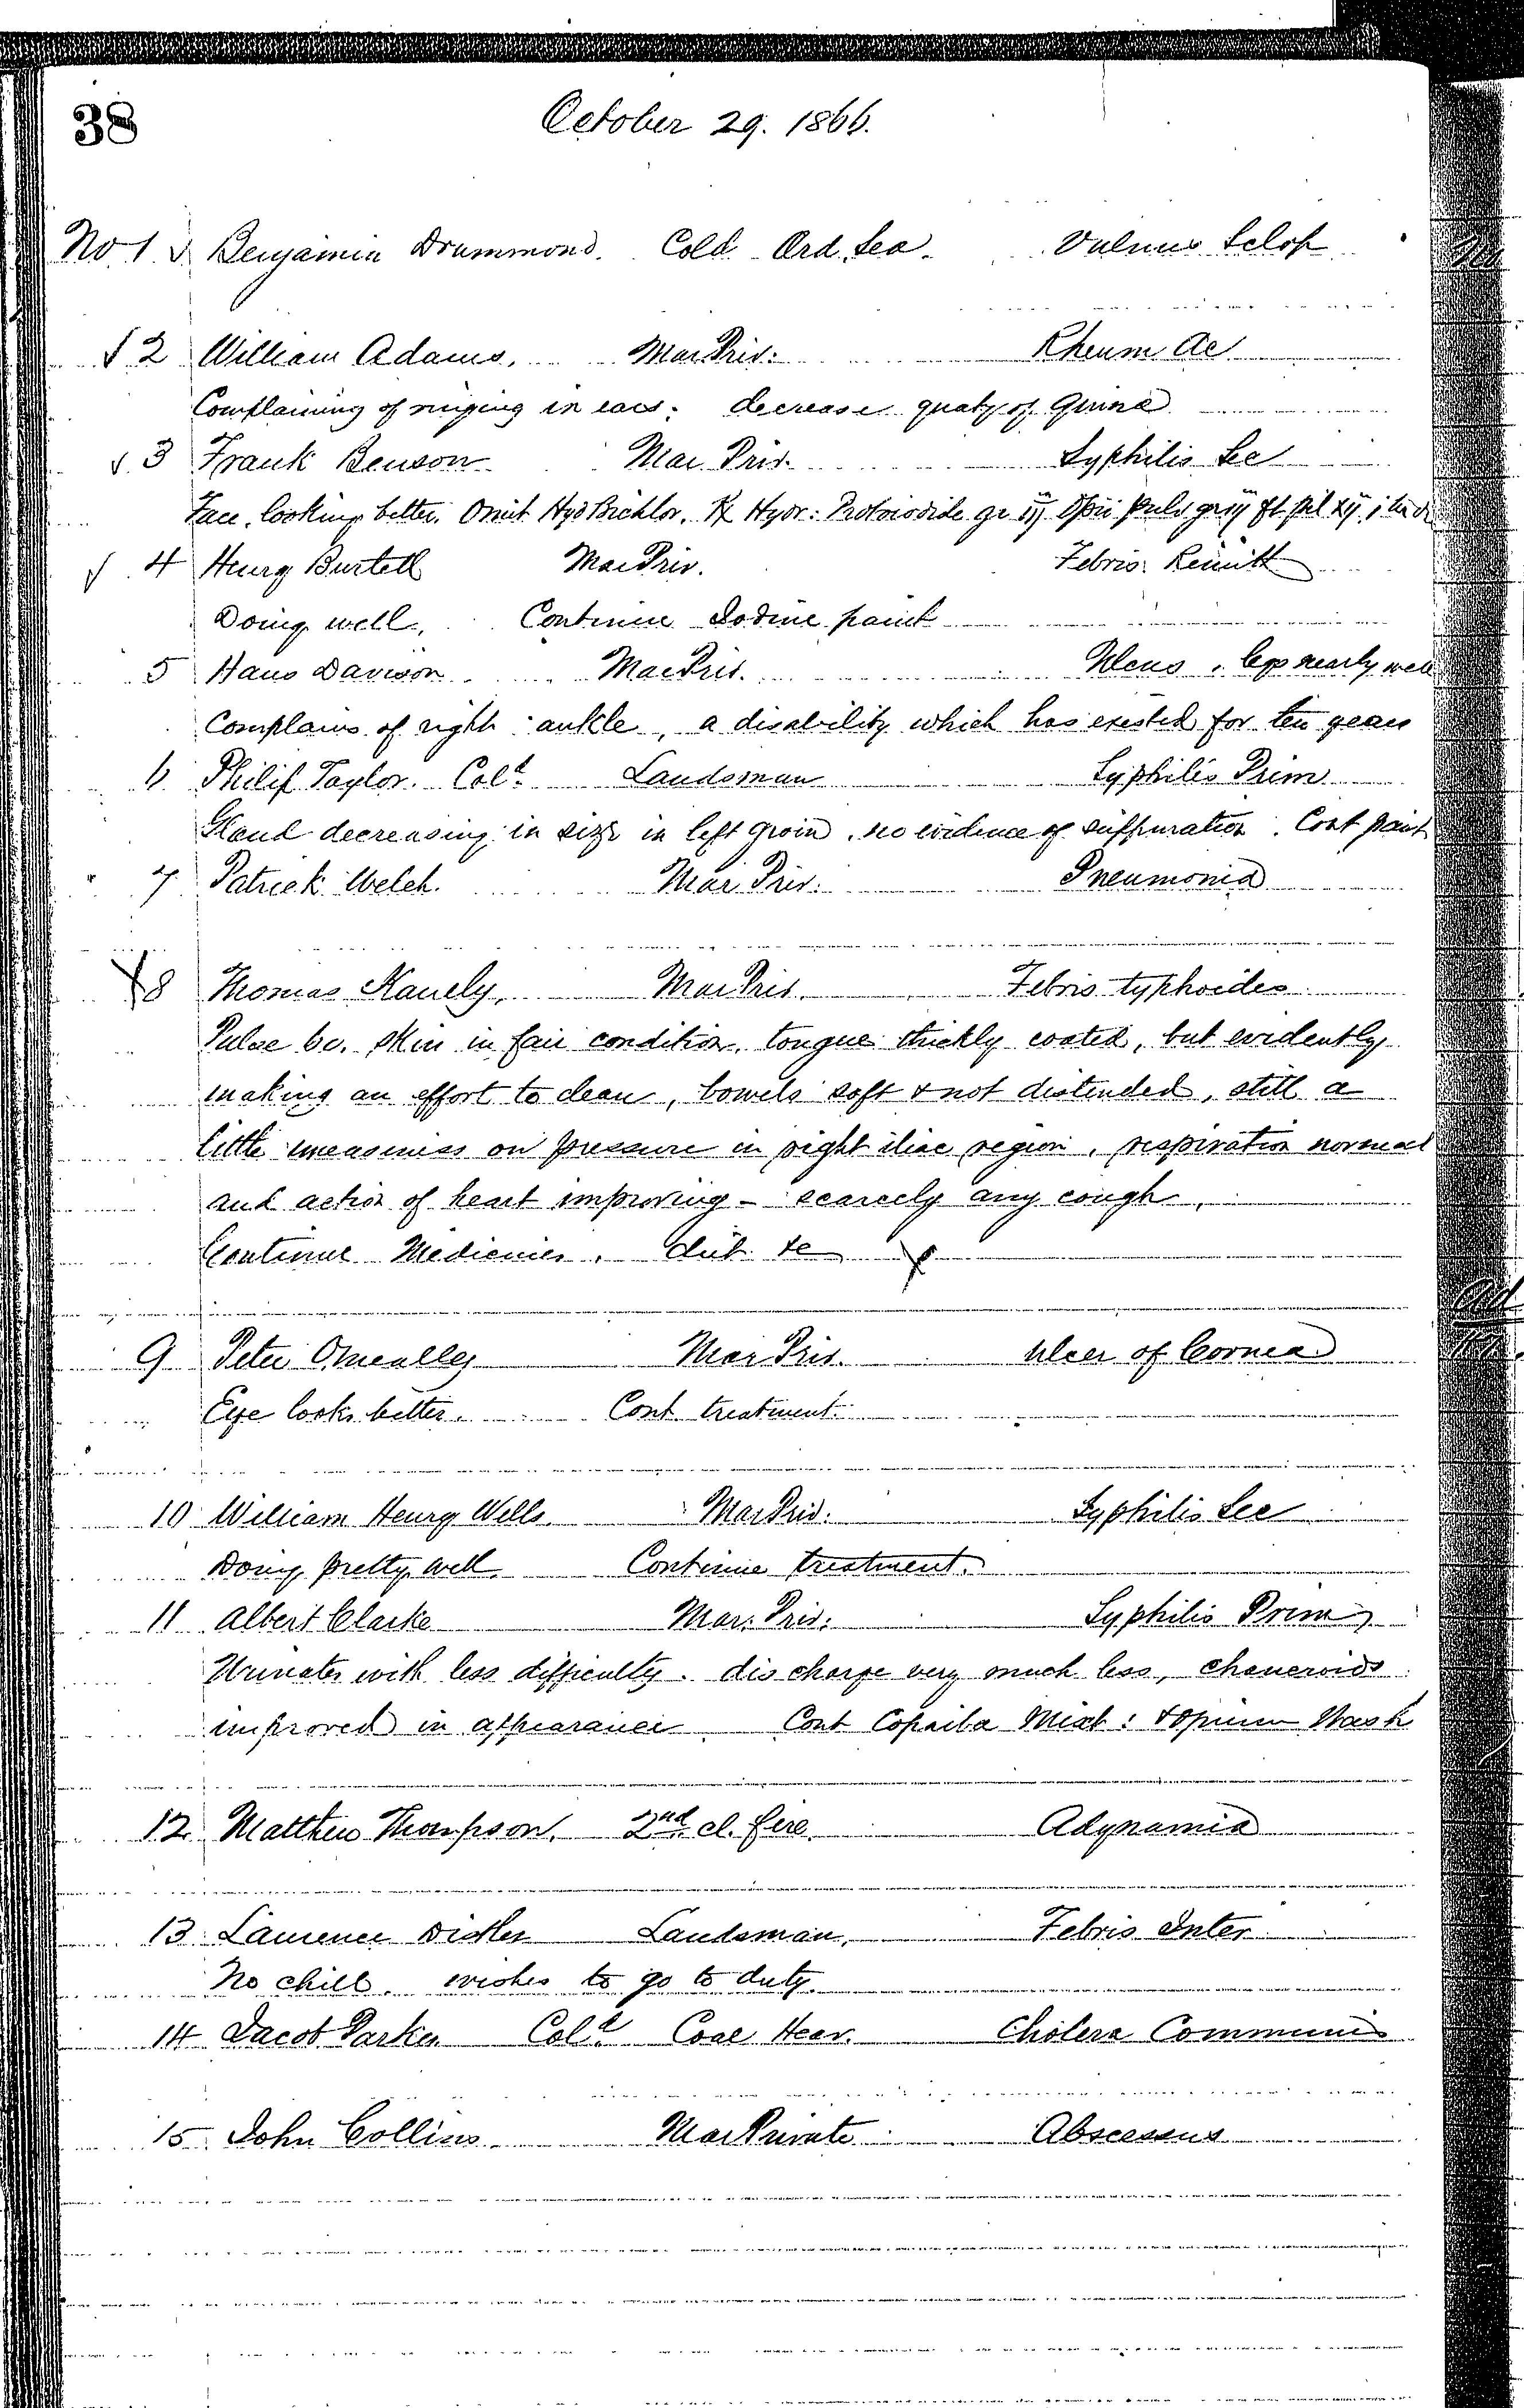 38
October 29. 1866.
No 1 Benjamin Drummond. Cold Ord. Sea. Vulnus Sclop
2 William Adams. Mar Priv: Rheum Ac
Complaining of ringing in ears: decrease quaty of Quina
3 Frank Benson Mar. Priv. Syphilis Sec
Face, looking better. Omit Hyd Bichlor. ℞ Hydr: Protoiodide gr iij Opii pulv gr iij ft pil xij. i
4 Henry Burtell Mar Priv. Febris Remitt
Doing well. Continue Iodine paint
5 Hans Davison Mar Priv. Ulcus, legs nearly well
Complains of right ankle, a disability which has existed for ten years
6 Philip Taylor. Cold. Landsman Syphilis Prim
Gland decreasing in size in left groin, no evidence of suppuration. Cont paint
7 Patrick Welch. Mar Priv: Pneumonia
8 Thomas Kanely. Mar Priv. Febris typhoides
Pulse 60. Skin in fair condition. tongue thickly coated, but evidently
making an effort to clean, bowels soft & not distended, still a
little uneasiness on pressure in right iliac region, respiration normal
and action of heart improving - scarcely any cough.
Continue Medicines. diet &c
9 Peter Omealley Mar Priv. Ulcer of Cornea
Eye looks better. Cont treatment.
10 William Henry Wells. Mar Priv: Syphilis Sec
Doing pretty well. Continue treatment.
11 Albert Clarke Mar: Priv: Syphilis Prim
Urinates with less difficulty. discharge very much less, chancroids
improved in appearance Cont Copaiba Mixt: & Opium Wash
12 Matthew Thompson. 2nd. cl. fire. Adynamia
13 Laurence Distler Landsman. Febris Inter
No chill. wishes to go to duty.
14 Jacob Parker Cold. Coal Heav. Cholera Communis
15 John Collins Mar Private Abscessus